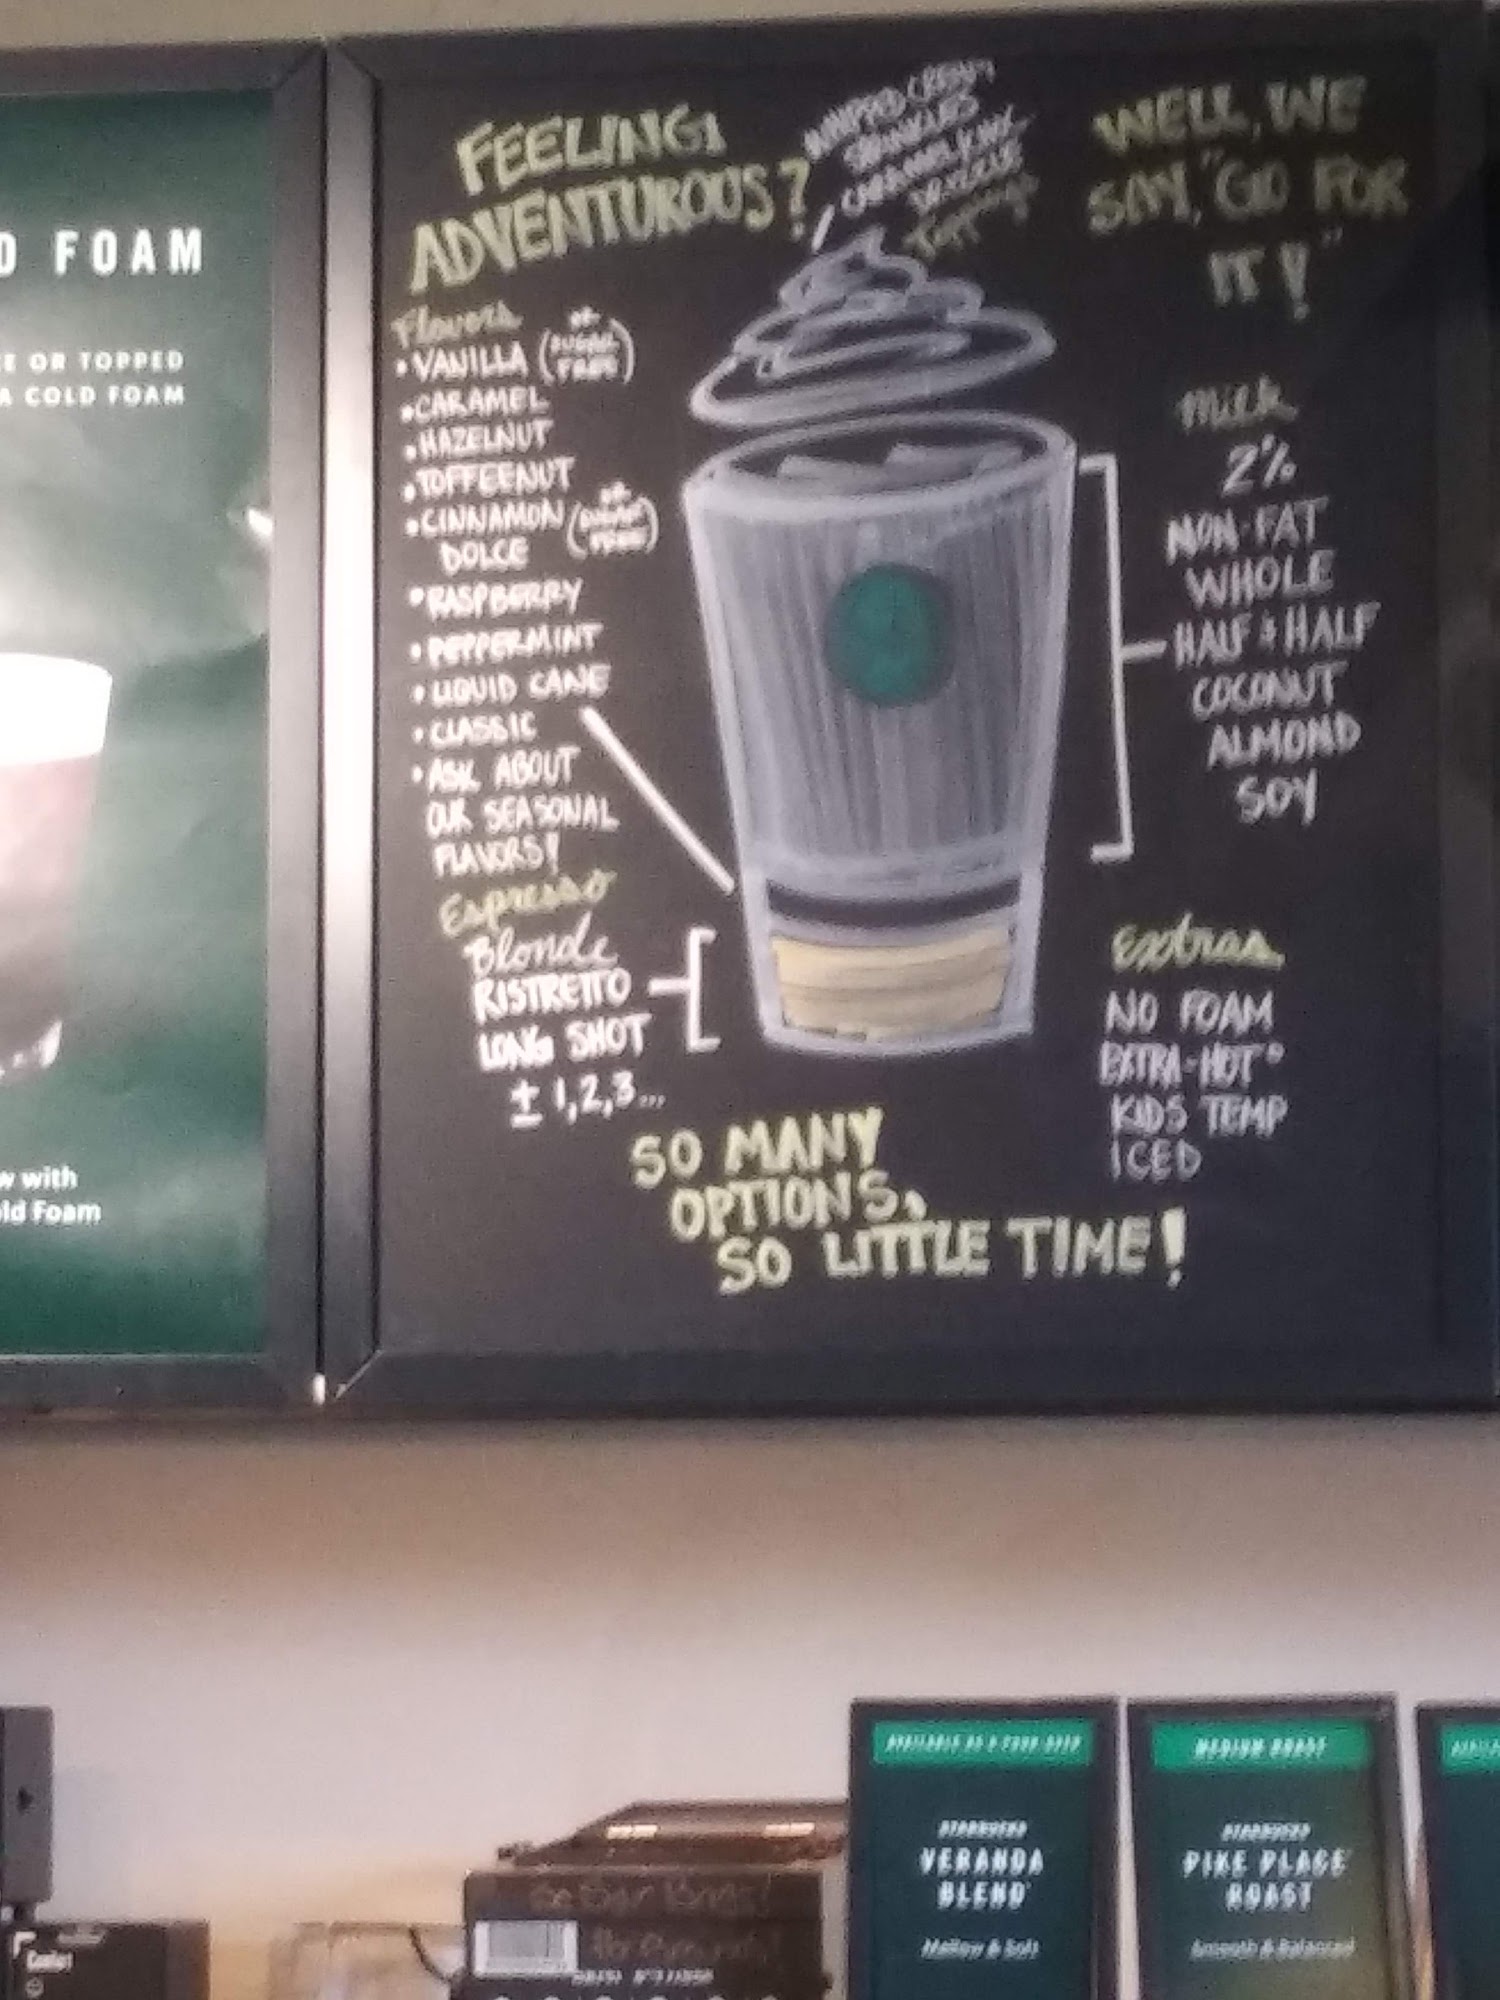 D FOAM
OR TOPPED
A COLD FOAM
w with
ld Foam
FEELING
ADVENTUROUS?
WHIPPED CREAM
SPRINKLES
CARAMEL
Toppings
WELL, WE
SAY, "GO FOR
IT!"
Flavors
• VANILLA (or SUGAR FREE)
• CARAMEL
• HAZELNUT
• TOFFEENUT
• CINNAMON DOLCE (or SUGAR FREE)
• RASPBERRY
• PEPPERMINT
• LIQUID CANE
• CLASSIC
• ASK ABOUT
OUR SEASONAL
FLAVORS!
Espresso
Blonde
RISTRETTO
LONG SHOT
± 1,2,3...
Milk
2%
NON-FAT
WHOLE
HALF & HALF
COCONUT
ALMOND
SOY
Extras
NO FOAM
EXTRA-HOT°
KIDS TEMP
ICED
SO MANY
OPTIONS,
SO LITTLE TIME!
STARBUCKS
VERANDA
BLEND
Mellow & Soft
MEDIUM ROAST
STARBUCKS
PIKE PLACE
ROAST
Smooth & Balanced